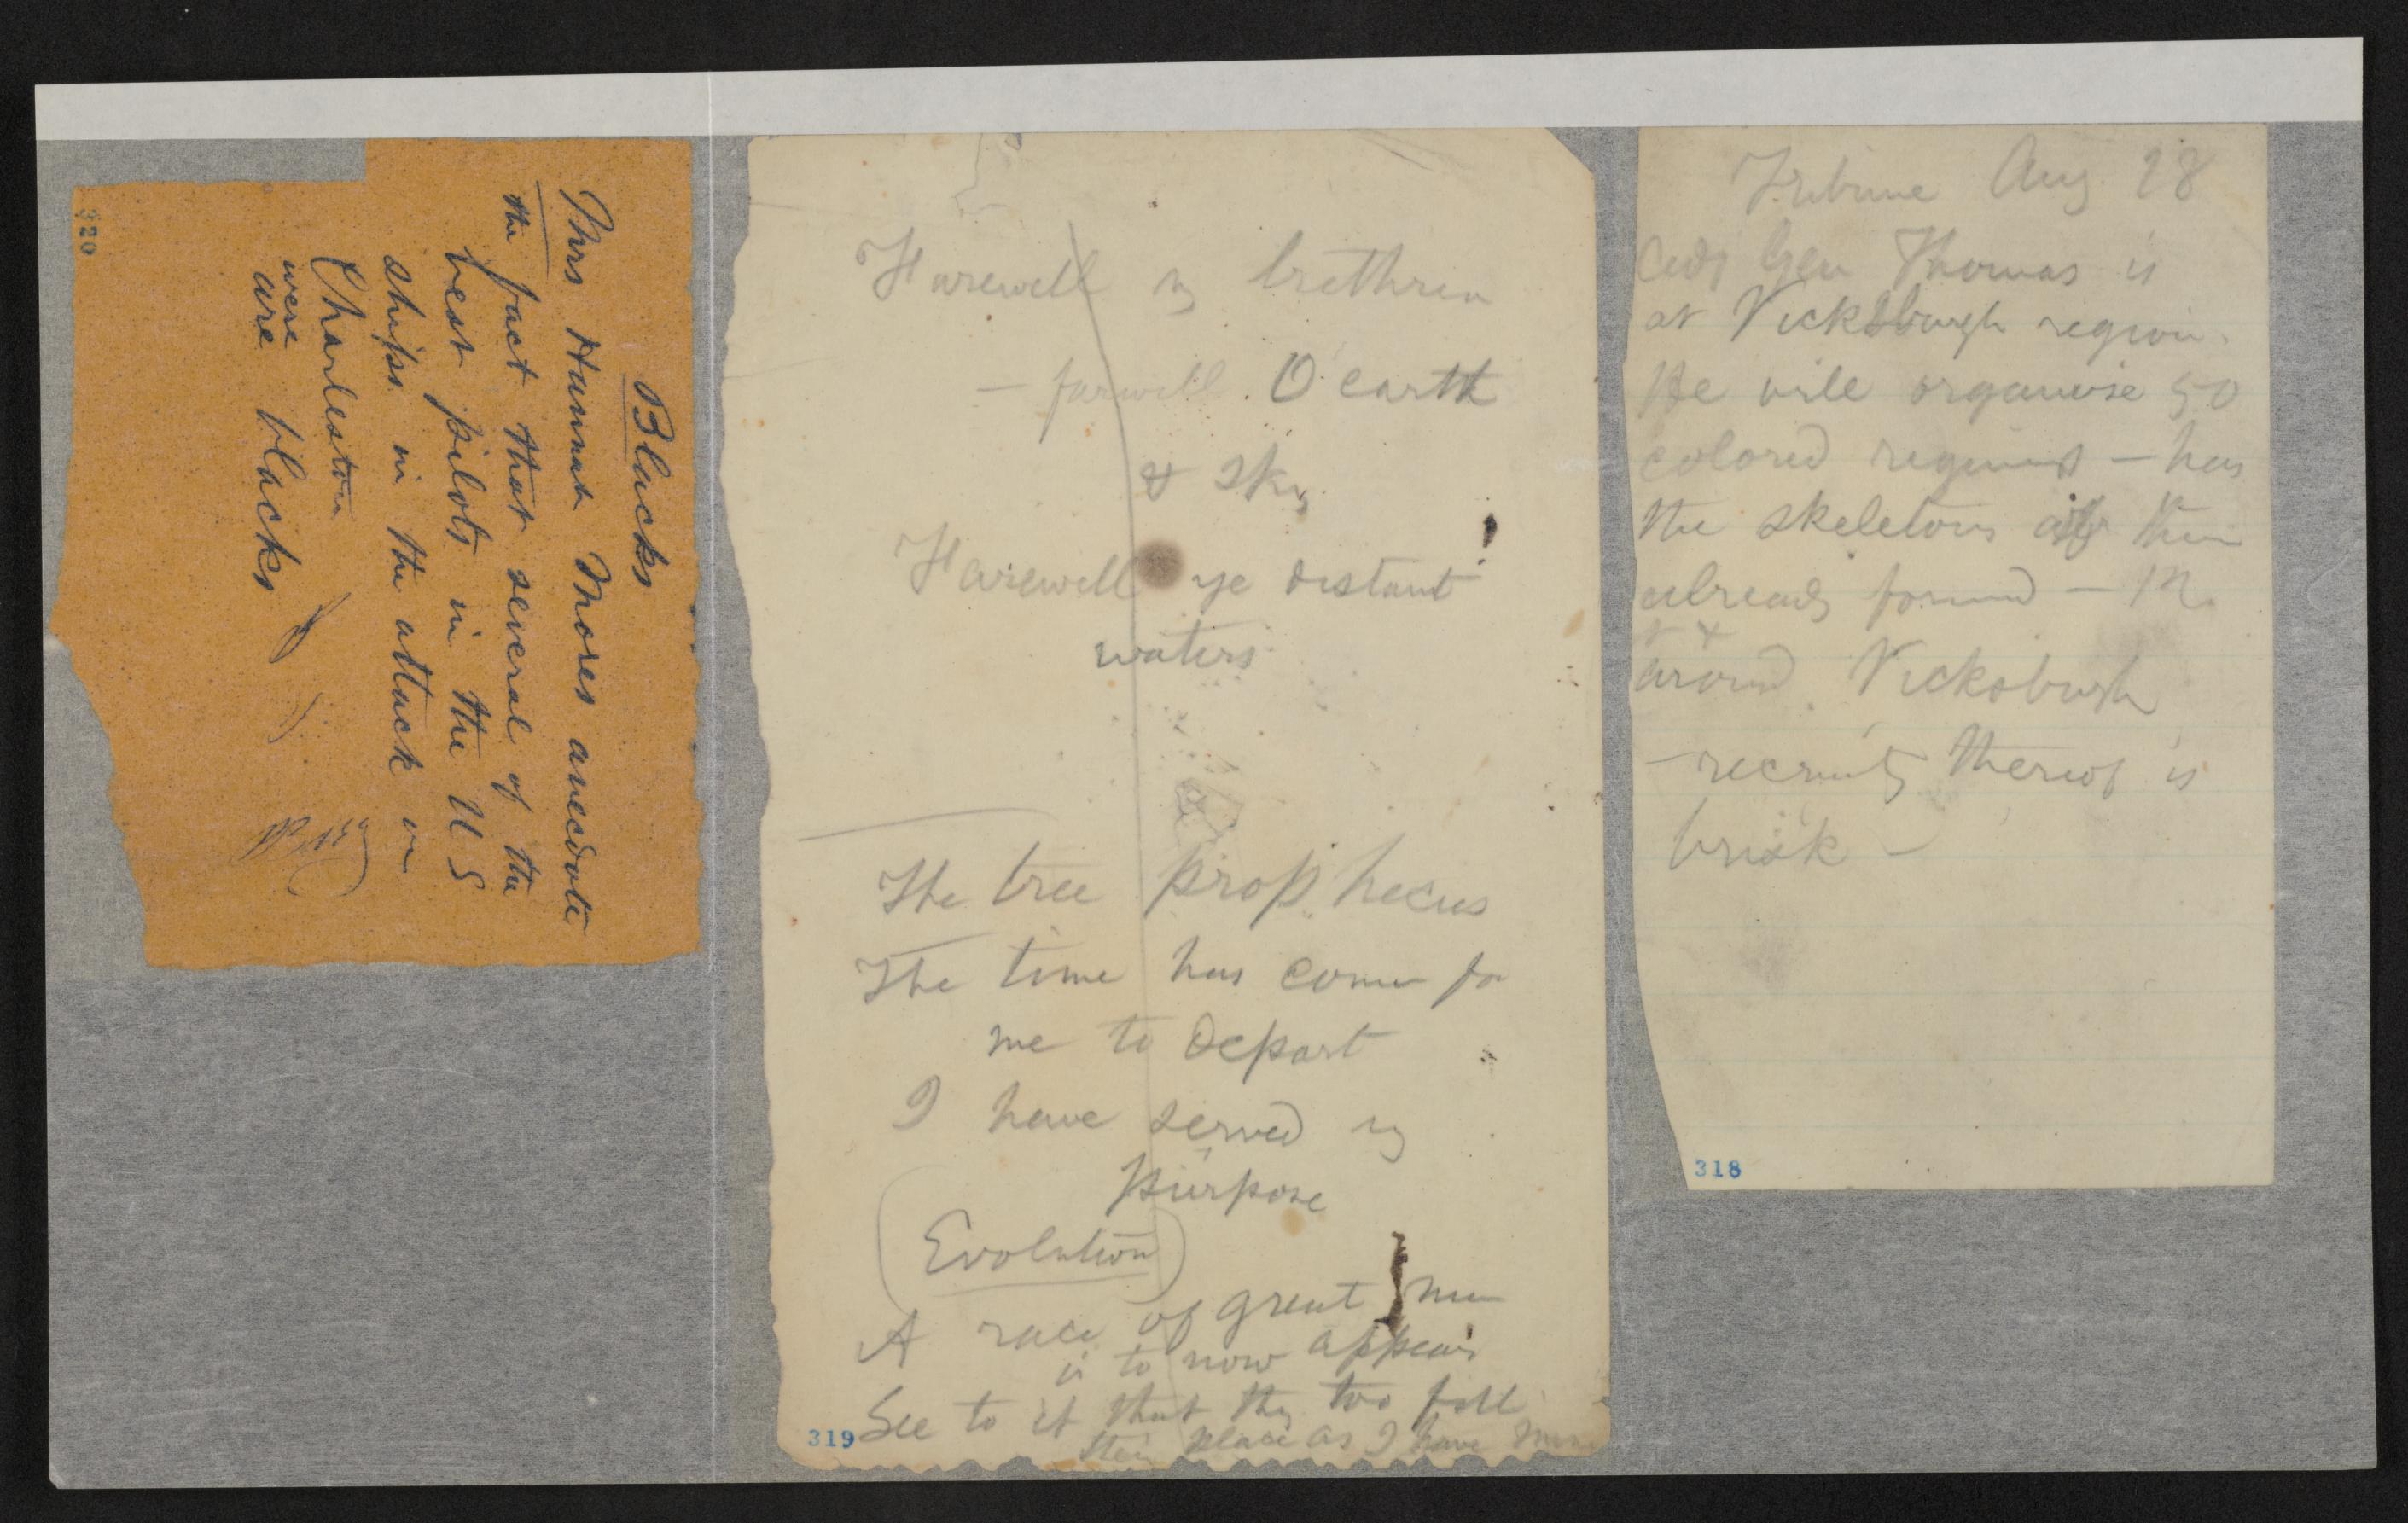 Blacks
Mrs Hannah Mores anecdote
the fact that several of the
best pilots in the U S
ships in the attack on
Charleston
were
are blacks
320
Farewell my brethren
— farwell O earth
& sky
Farewell ye distant !
waters
The tree prophecies
The time has come for
me to depart
I have served my
purpose
(Evolution)
A race of great men
is to now appear
See to it that they too fill
their place as I have mine
319
Tribune Aug 28
Adj Gen Thomas is
at Vicksburgh region.
He will organise 50
colored regiments — has
the skeletons of them
already formed — in
& around Vicksburgh
— recruiting thereof is
brisk —
318